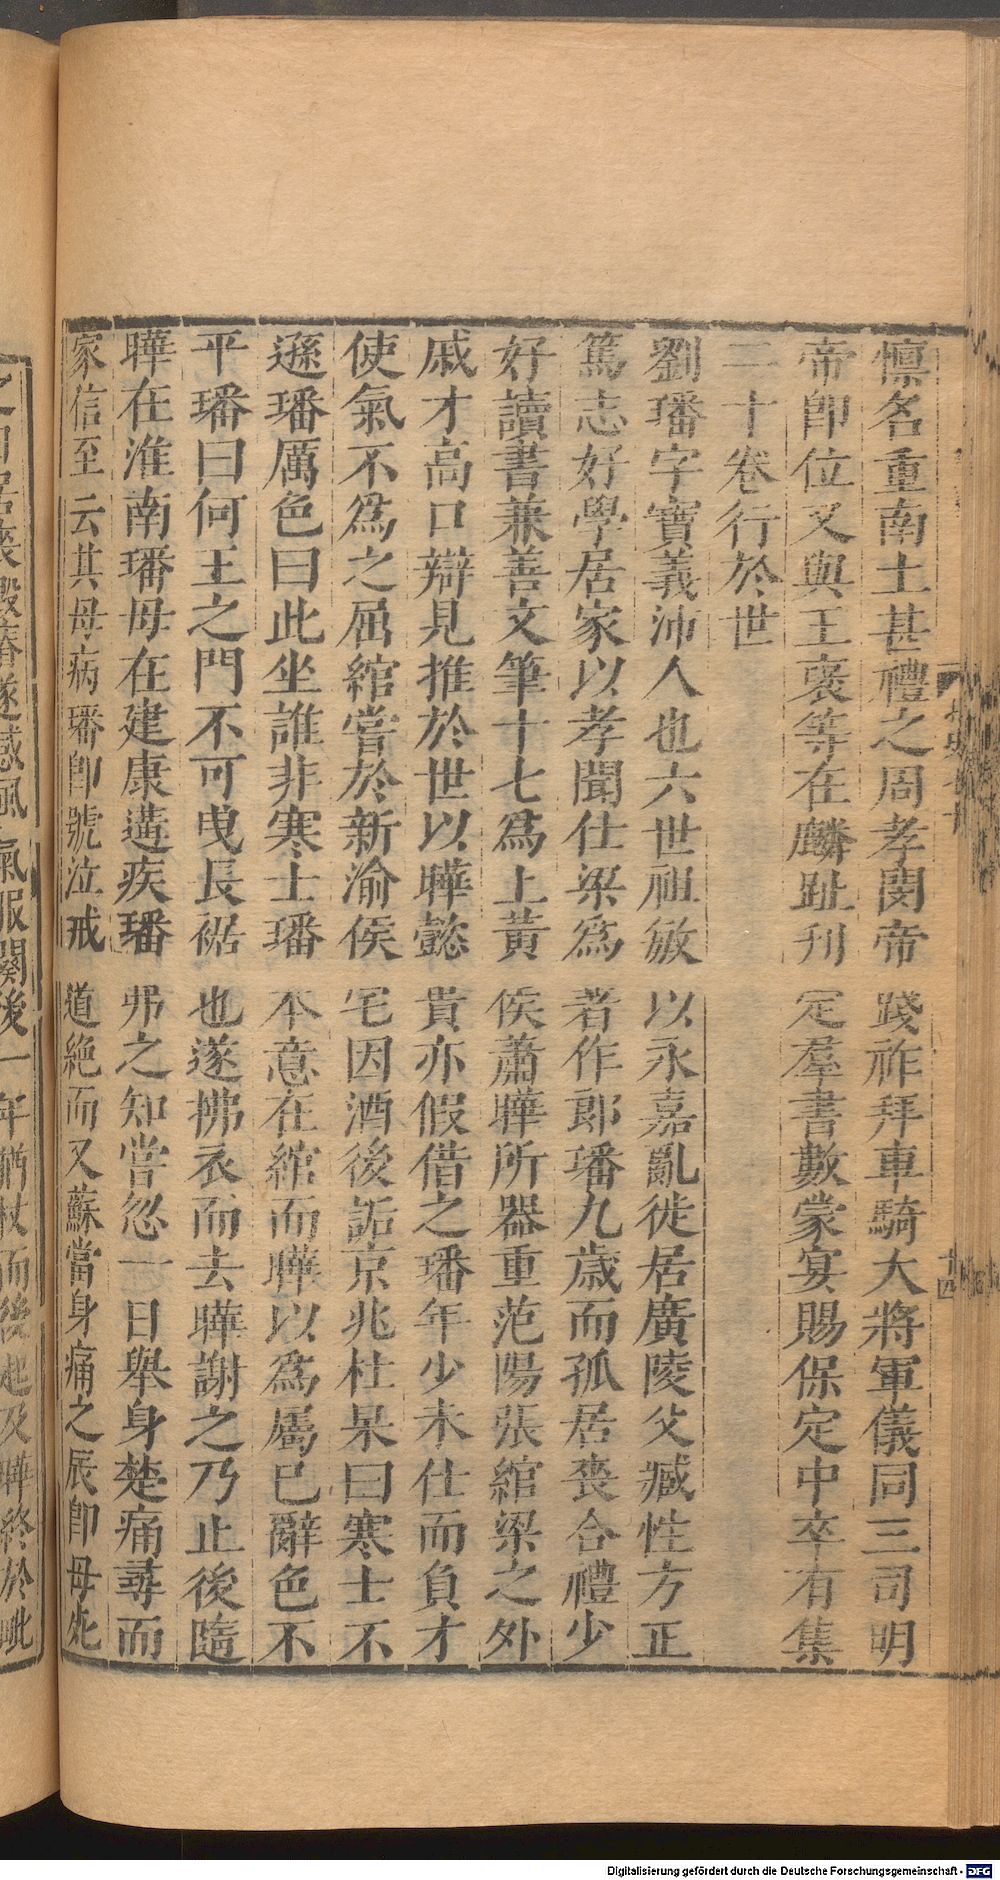 懍名重南土甚禮之周孝閔帝踐祚拜車騎大將軍儀同三司明
帝卽位又與王褒等在麟趾刋定羣書數蒙宴賜保定中卒有集
二十卷行於世
劉璠字寶義沛人也六世祖敏以永嘉亂徙居廣陵父臧性方正
篤志好學居家以孝聞仕梁爲著作郎璠九歲而孤居喪合禮少
好讀書兼善文筆十七爲上黃侯蕭曄所器重范陽張綰梁之外
戚才高口辯見推於世以曄懿貴亦假借之璠年少未仕而負才
使氣不爲之屈綰嘗於新渝侯宅因酒後詬京兆杜杲曰寒士不
遜璠厲色曰此坐誰非寒士璠本意在綰而曄以爲屬已辭色不
平璠曰何王之門不可曳長裾也遂拂衣而去曄謝之乃止後隨
曄在淮南璠母在建康遘疾璠弗之知嘗忽一日舉身楚痛尋而
家信至云其母病璠卽號泣戒道絶而又蘇當身痛之辰卽母死
居喪毀瘠遂感風氣服闋後一年猶杖而後起及曄終於毗
十四
Digitalisierung gefördert durch die Deutsche Forschungsgemeinschaft - DFG